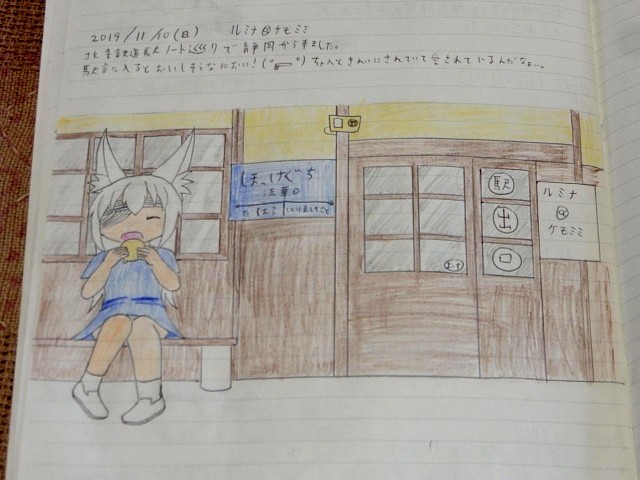 2019/11/10(日) ルミナ@ケモミミ
北条鉄道駅ノート巡りで静岡から来ました。
駅舎に入るとおいしそうなにおい!ちゃんときれいにされていて愛されているんだなぁ…。
ほっけぐち
法華口
はりましもさと
駅
出
口
ルミナ
@
ケモミミ